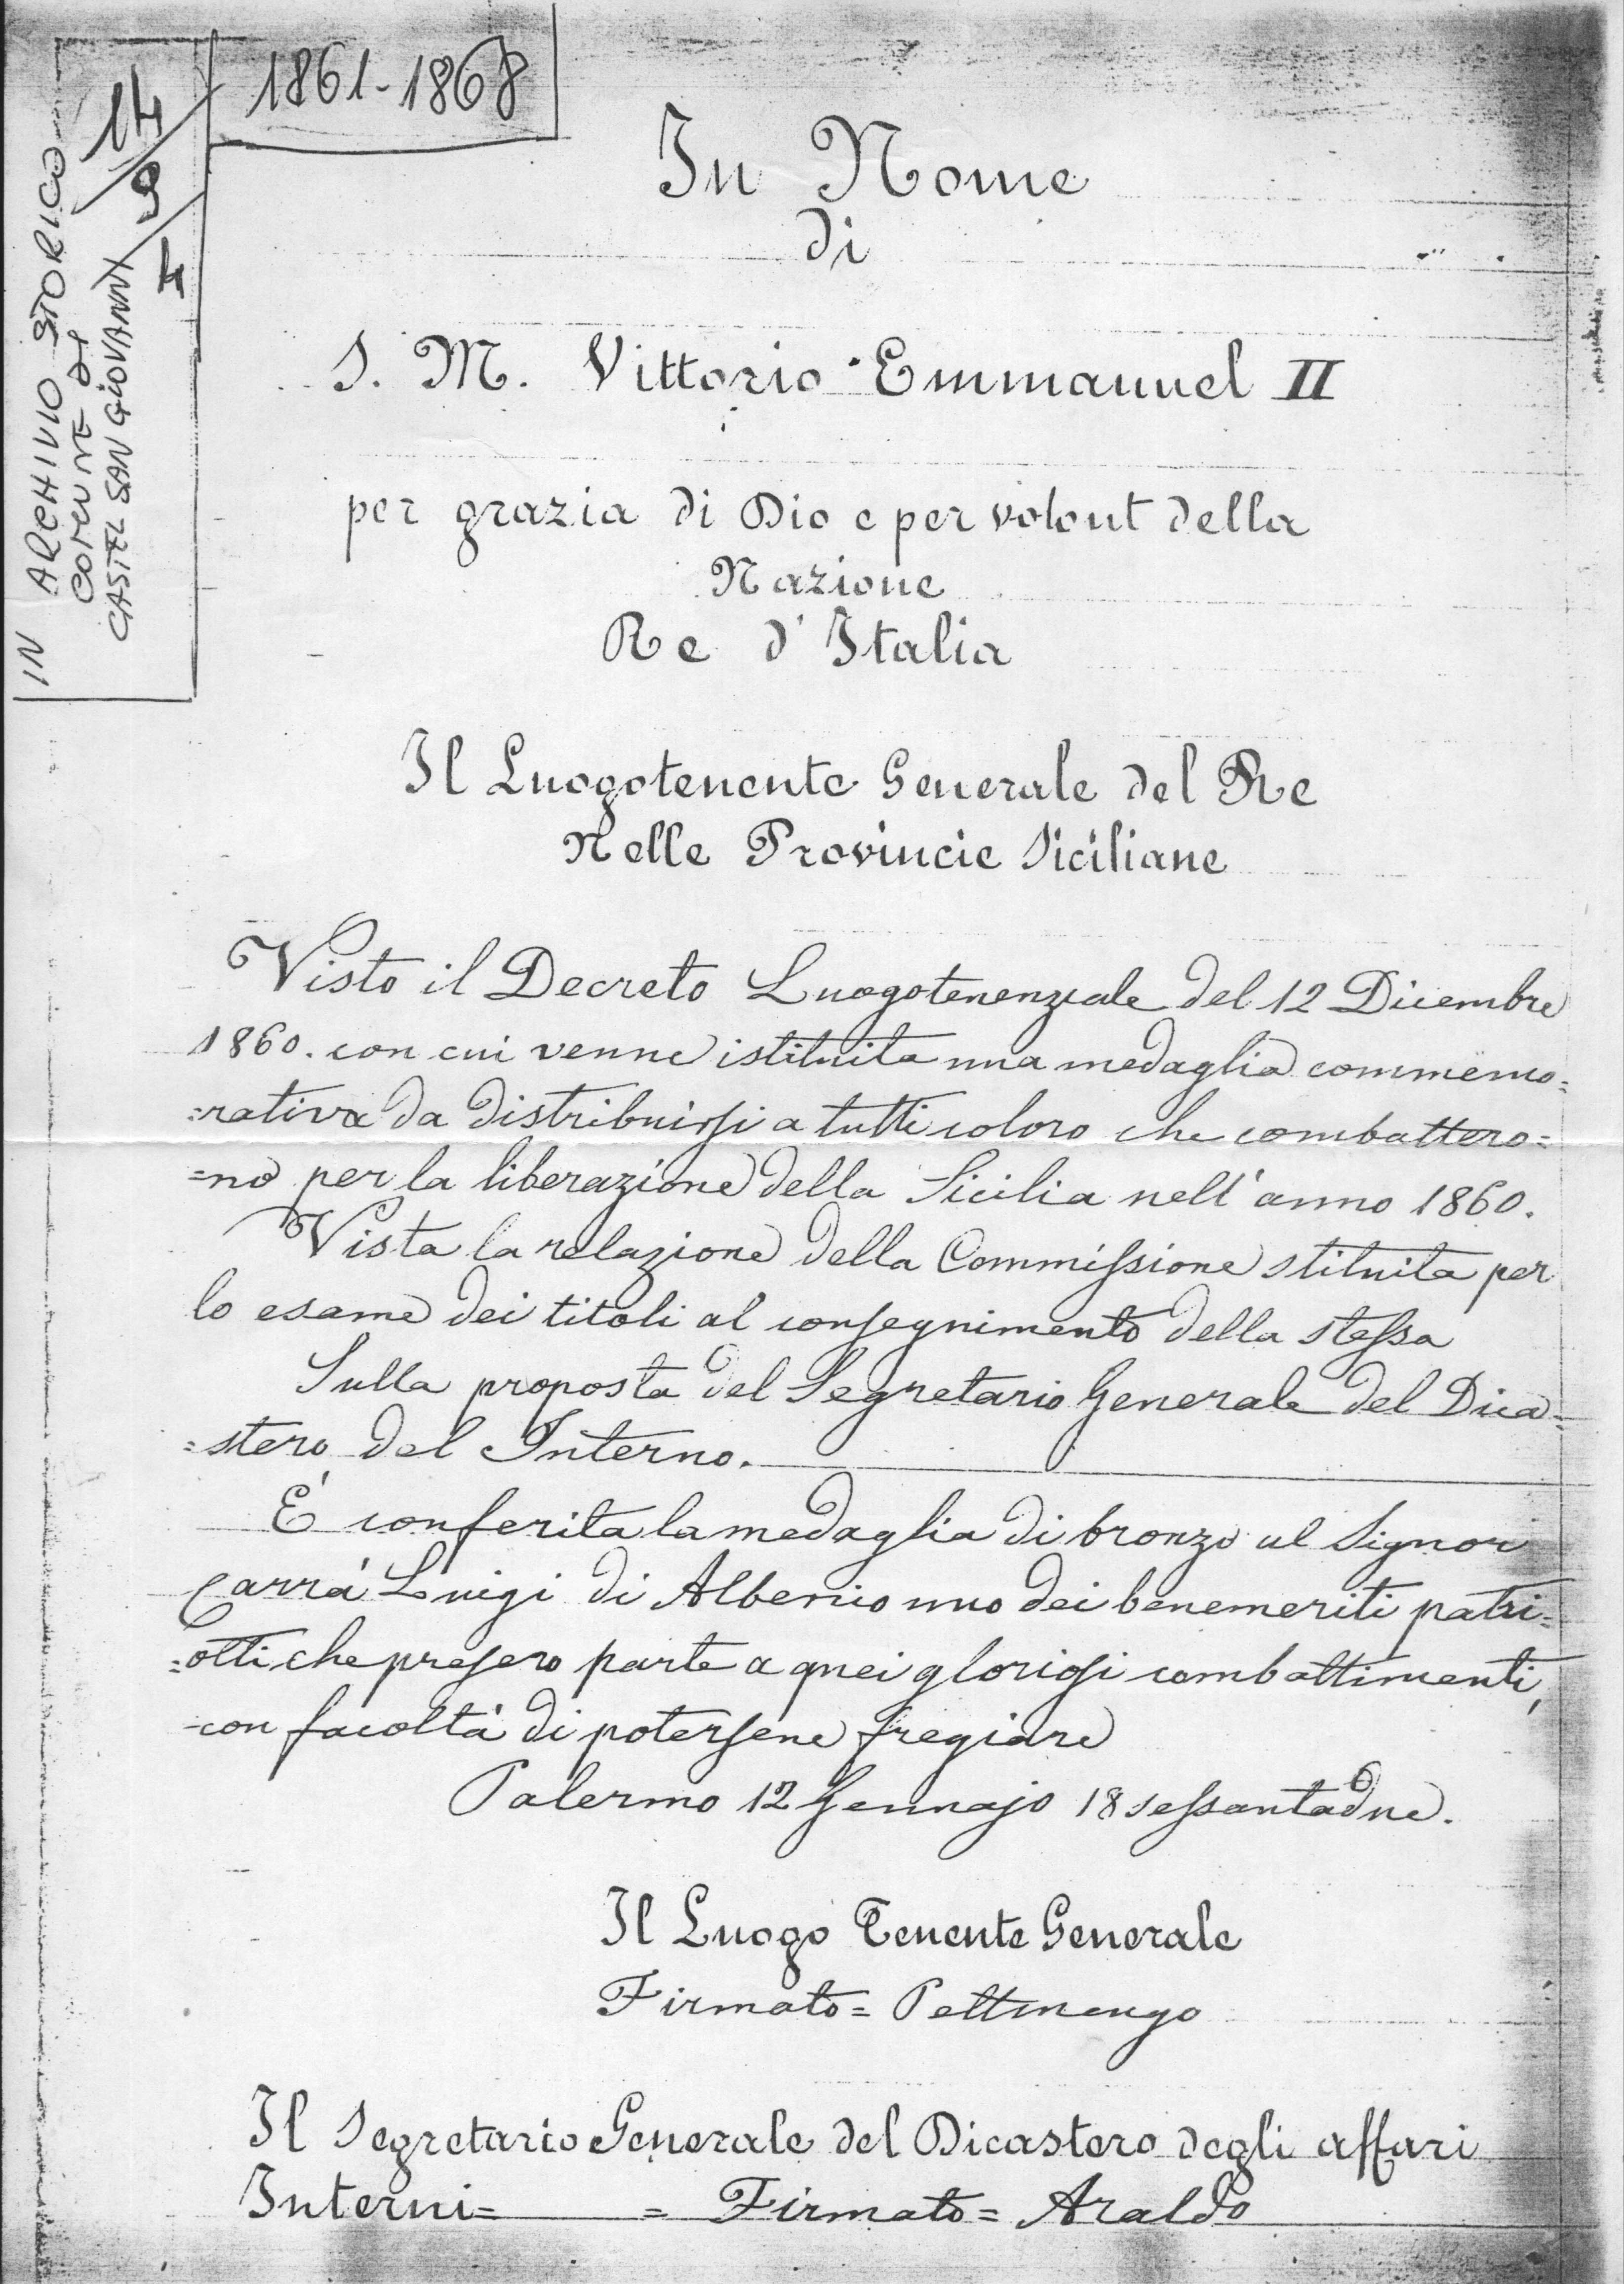 1861-1868
14/9/4
IN ARCHIVIO STORICO
COMUNE DI
CASTEL SAN GIOVANNI
In Nome
di
S. M. Vittorio Emmanuel II
per grazia di Dio e per volont della
Nazione
Re d'Italia
Il Luogotenente Generale del Re
Nelle Provincie Siciliane
Visto il Decreto Luogotenenziale del 12 Dicembre
1860. con cui venne istituita una medaglia commemo=
=rativa da distribuirsi a tutti coloro che combattero=
=no per la liberazione della Sicilia nell'anno 1860.
Vista la relazione della Commissione stituita per
lo esame dei titoli al conseguimento della stessa
Sulla proposta del Segretario Generale del Dica=
=stero del Interno.
E' conferita la medaglia di bronzo al Signor
Carrà Luigi di Alberico uno dei benemeriti patri=
=otti che presero parte a quei gloriosi combattimenti,
con facoltà di potersene fregiare
Palermo 12 Gennajo 18sessantadue.
Il Luogo Tenente Generale
Firmato= Pettinengo
Il Segretario Generale del Dicastero degli affari
Interni= = Firmato= Araldo